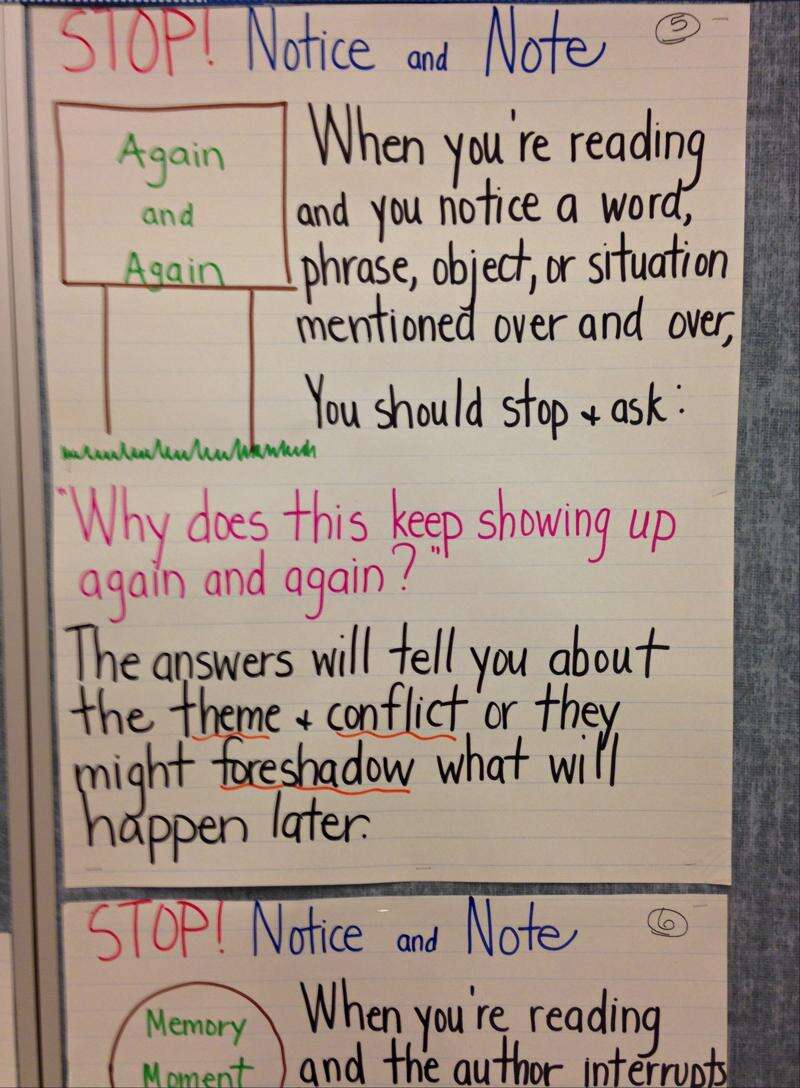 STOP! Notice and Note
5
Again
and
Again
When you're reading
and you notice a word,
phrase, object, or situation
mentioned over and over,
You should stop + ask:
"Why does this keep showing up
again and again?"
The answers will tell you about
the theme + conflict or they
might foreshadow what will
happen later.
STOP! Notice and Note
6
Memory
Moment
When you're reading
and the author interrupts